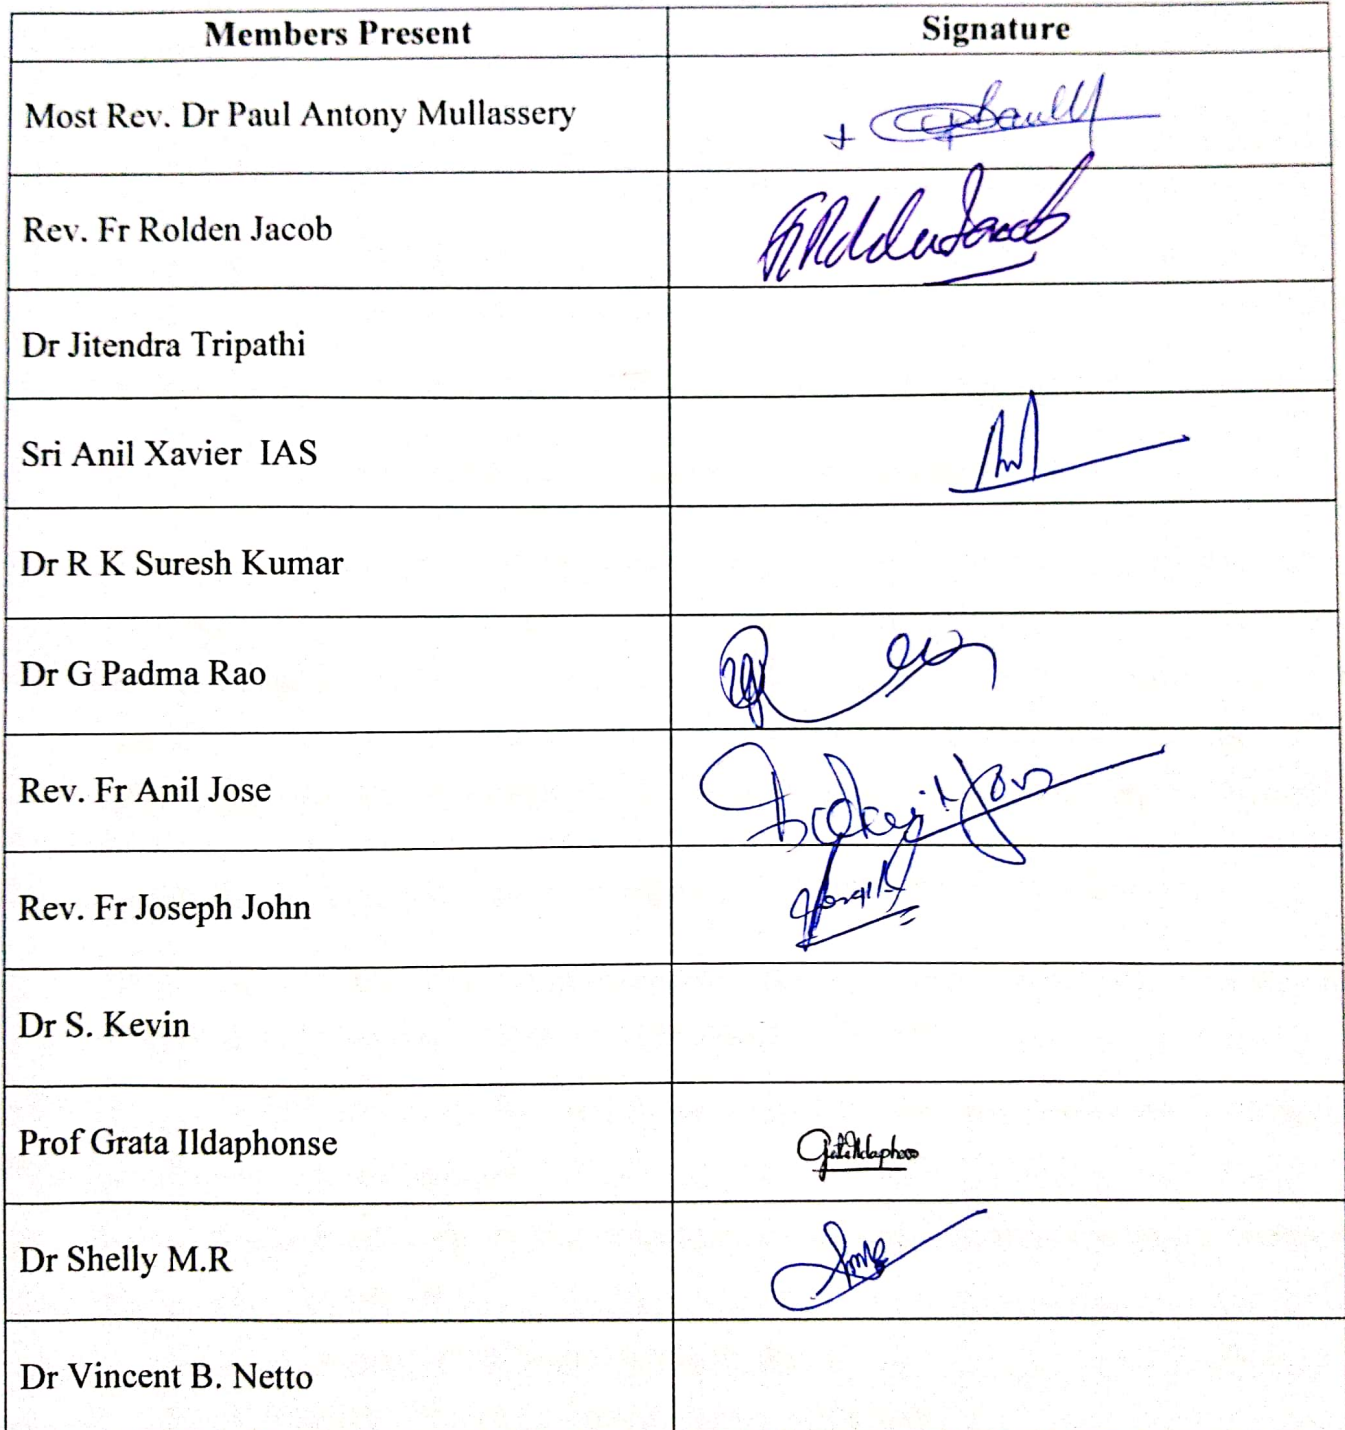 Members Present Signature
Most Rev. Dr Paul Antony Mullassery
Rev. Fr Rolden Jacob Fr Rolden Jacob
Dr Jitendra Tripathi
Sri Anil Xavier IAS
Dr R K Suresh Kumar
Dr G Padma Rao
Rev. Fr Anil Jose
Rev. Fr Joseph John
Dr S. Kevin
Prof Grata Ildaphonse
Dr Shelly M.R
Dr Vincent B. Netto